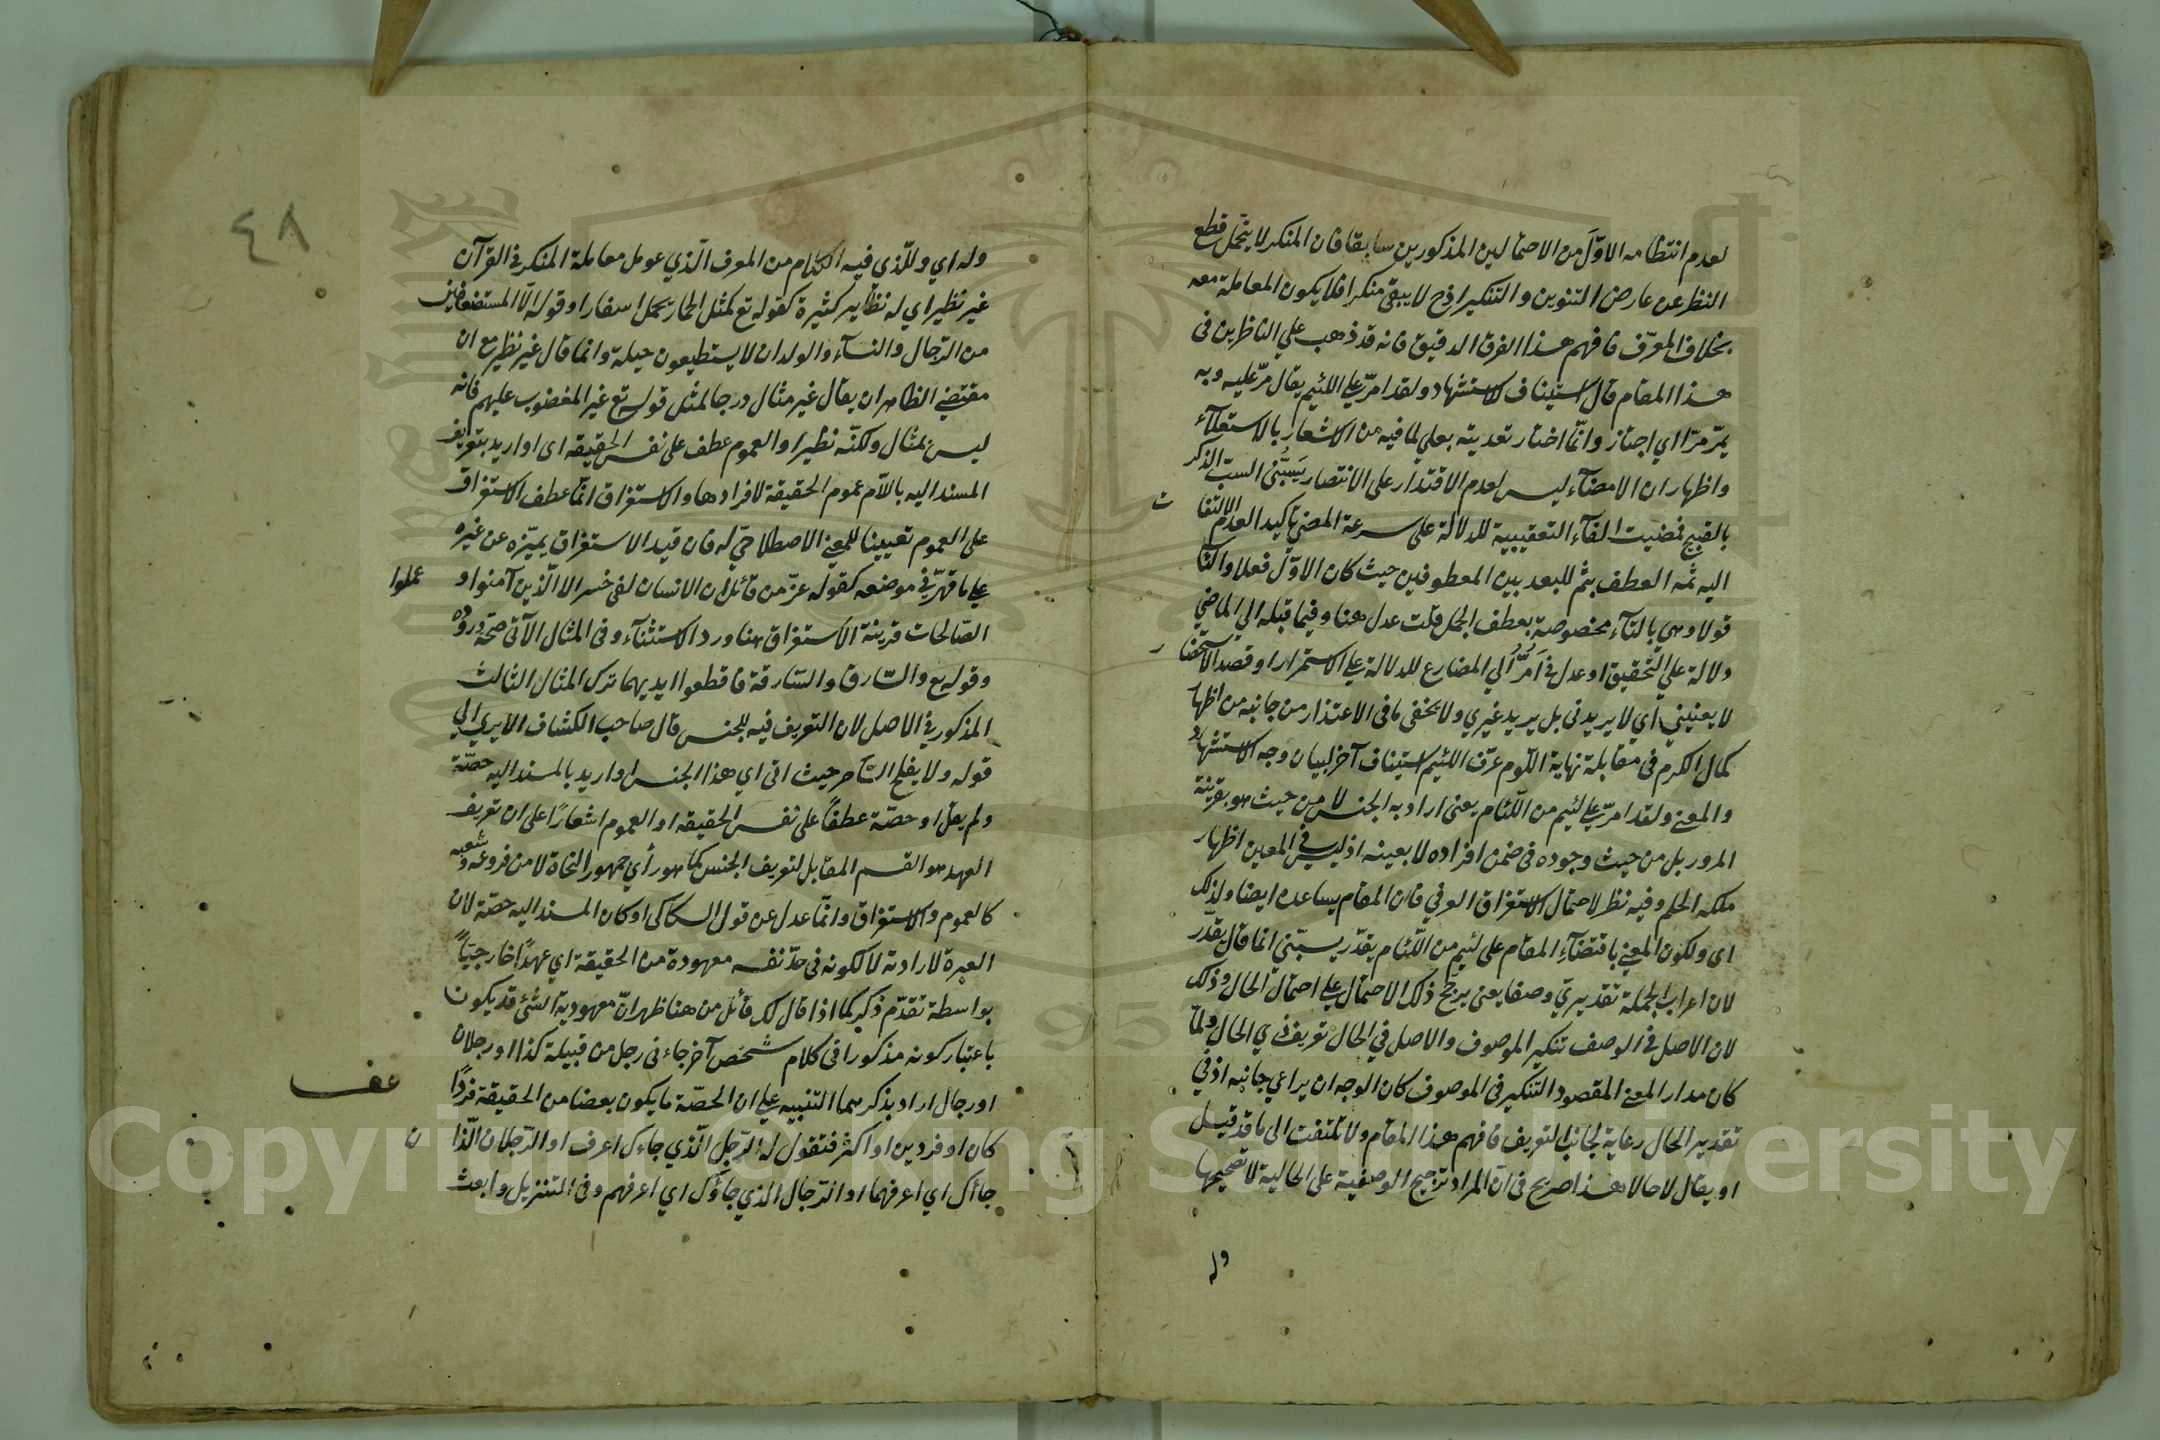 لعدم انتظامه الاوّل من الاحتمالين المذكورين سابقا فان المنكر لا يتحمل قطع
النظر عن عارض التنوين والتنكير اذ ح لا يبقى منكرا فلا يكون المعاملة معه
بخلاف المعرّف فافهم هذا الفرق الدقيق فانه قد ذهب علي الناظرين في
هذا المقام قال استيناف للاستشهاد ولقد امرّ علي اللئيم يقال مرّ عليه وبه
يمرّ مرّا اي اجتاز وانّما اختار تعديته بعلي لما فيه من الاشعار بالاستعلآء
واظهار ان الامضآء ليس لعدم الاقتدار على الانتصار يَسُبُّني السبّ الذكر
بالقبيح فمضيت الفآء التعقيبية للدلالة على سرعة المضي تأكيد العدم الالتفات
اليه ثمه العطف بثم للبعد بين المعطوفين حيث كان الاوّل فعلا والثا
قولا وهي بالتآء مخصوصة بعطف الجمل قلت عدل هنا وفيما قبله الي الماضي
دلالة علي التحقيق اوعدل في اَمُرُّ الي المضارع للدلالة علي الاستمرار او قصد الاستحضار
لا يعنيني اي لا يريدني بل يريد غيري ولا يخفى ما في الاعتذار من جانبه من اظها
كمال الكرم في مقابلة نهاية اللوم عرّف اللئيم استيناف آخر لبيان وجه الاستشهاد
والمعنے ولقد امرّ علي لئيم من اللّئام يعني اراد به الجنس لا من حيث هو بقرينة
المرور بل من حيث وجوده في ضمن افراده لا بعينه اذ ليس في المعين اظهار
ملكه الحلم وفيه نظر لاحتمال الاستغراق العرفي فان المقام يساعده ايضا ولذلك
اى ولكون المعنے باقتضآء المقام على لئيم من اللّئام يقدّر يسبّني انما قال يقدّر
لان اعراب الجملة تقديريّ وصفا يعني يرجّح ذلك الاحتمال علي احتمال الحال وذلك
لان الاصل في الوصف تنكير الموصوف والاصل في الحال تعريف ذي الحال ولمّا
كان مدار المعنے المقصود التنكير في الموصوف كان الوجه ان يراعي جانبه اذ في
تقدير الحال رعاية لجانب التعريف فافهم هذا المقام ولا تلتفت الى ما قد قيل
او يقال لا حالا هذا صريح في انّ المراد ترجيح الوصفية على الحالية لا تصحيحها
وله
٤٨
وله اي وللّذي فيه الكلام من المعرف الّذي عومل معاملة المنكر في القرآن
غير نظير اي له نظاير كثيرة كقوله تع كمثل الحمار يحمل اسفارا وقوله الّا المستضعفين
من الرّجال والنسآء والولدان لا يستطيعون حيلة وانما قال غير نظير مع ان
مقتضي الظاهر ان يقال غير مثال درجا لمثل قوله تع غير المغضوب عليهم فانه
ليس بمثال ولكنّه نظير او العموم عطف على نفس الحقيقه اى او اريد بتعريف
المسند اليه باللاّم عموم الحقيقة لافرادها والاستغراق انّما عطف الاستغراق
على العموم تعيينا للمعنے الاصطلاحيّ له فان قيد الاستغراق يميّزه عن غيره
علي ما قرّر في موضعه كقوله عزّ من قائل ان الانسان لفي خسر الا الّذين آمنوا و عملوا
الصّالحات قرينة الاستغراق هنا ورد الاستثنآء وفى المثال الآتى صحة وروده
وقوله تع والسّارق والسّارقة فاقطعوا ايديهما ترك المثال الثالث
المذكور في الاصل لان التعريف فيه للجنس قال صاحب الكشاف الا يرى الي
قوله ولا يفلح السّاحر حيث اتى اي هذا الجنس او اريد بالمسند اليه حصّة
ولم يقل او حصّة عطفًا على نفس الحقيقه او العموم اشعارًا على ان تعريف
العهد هو القسم المقابل لتعريف الجنس كما هو رأي جمهور النحاة لا من فروعه وشعبه
كالعموم والاستغراق وانّما عدل عن قول السكاكى او كان المسند اليه حصّة لان
العبرة لارادته لا لكونه في حدّ نفسه معهودة من الحقيقة اي عهدًا خارجيّاً
بواسطة تقدّم ذكر كما اذا قال لك قائل من هنا ظهر انّ معهودية الشّئ قد يكون
باعتبار كونه مذكورا في كلام شخص آخر جاءني رجل من قبيلة كذا او رجلان
او رجال اراد بذكرهما التنبيه علي ان الحصّة ما يكون بعضا من الحقيقة فردًا
كان او فردين او اكثر فتقول له الرّجل الّذي جاءك اعرف او الرّجلان اللّذان
جاآك اي اعرفهما او الرّجال الذي جاؤك اي اعرفهم وفى التنزيل وابعث
عف
Copyright © King Saud University